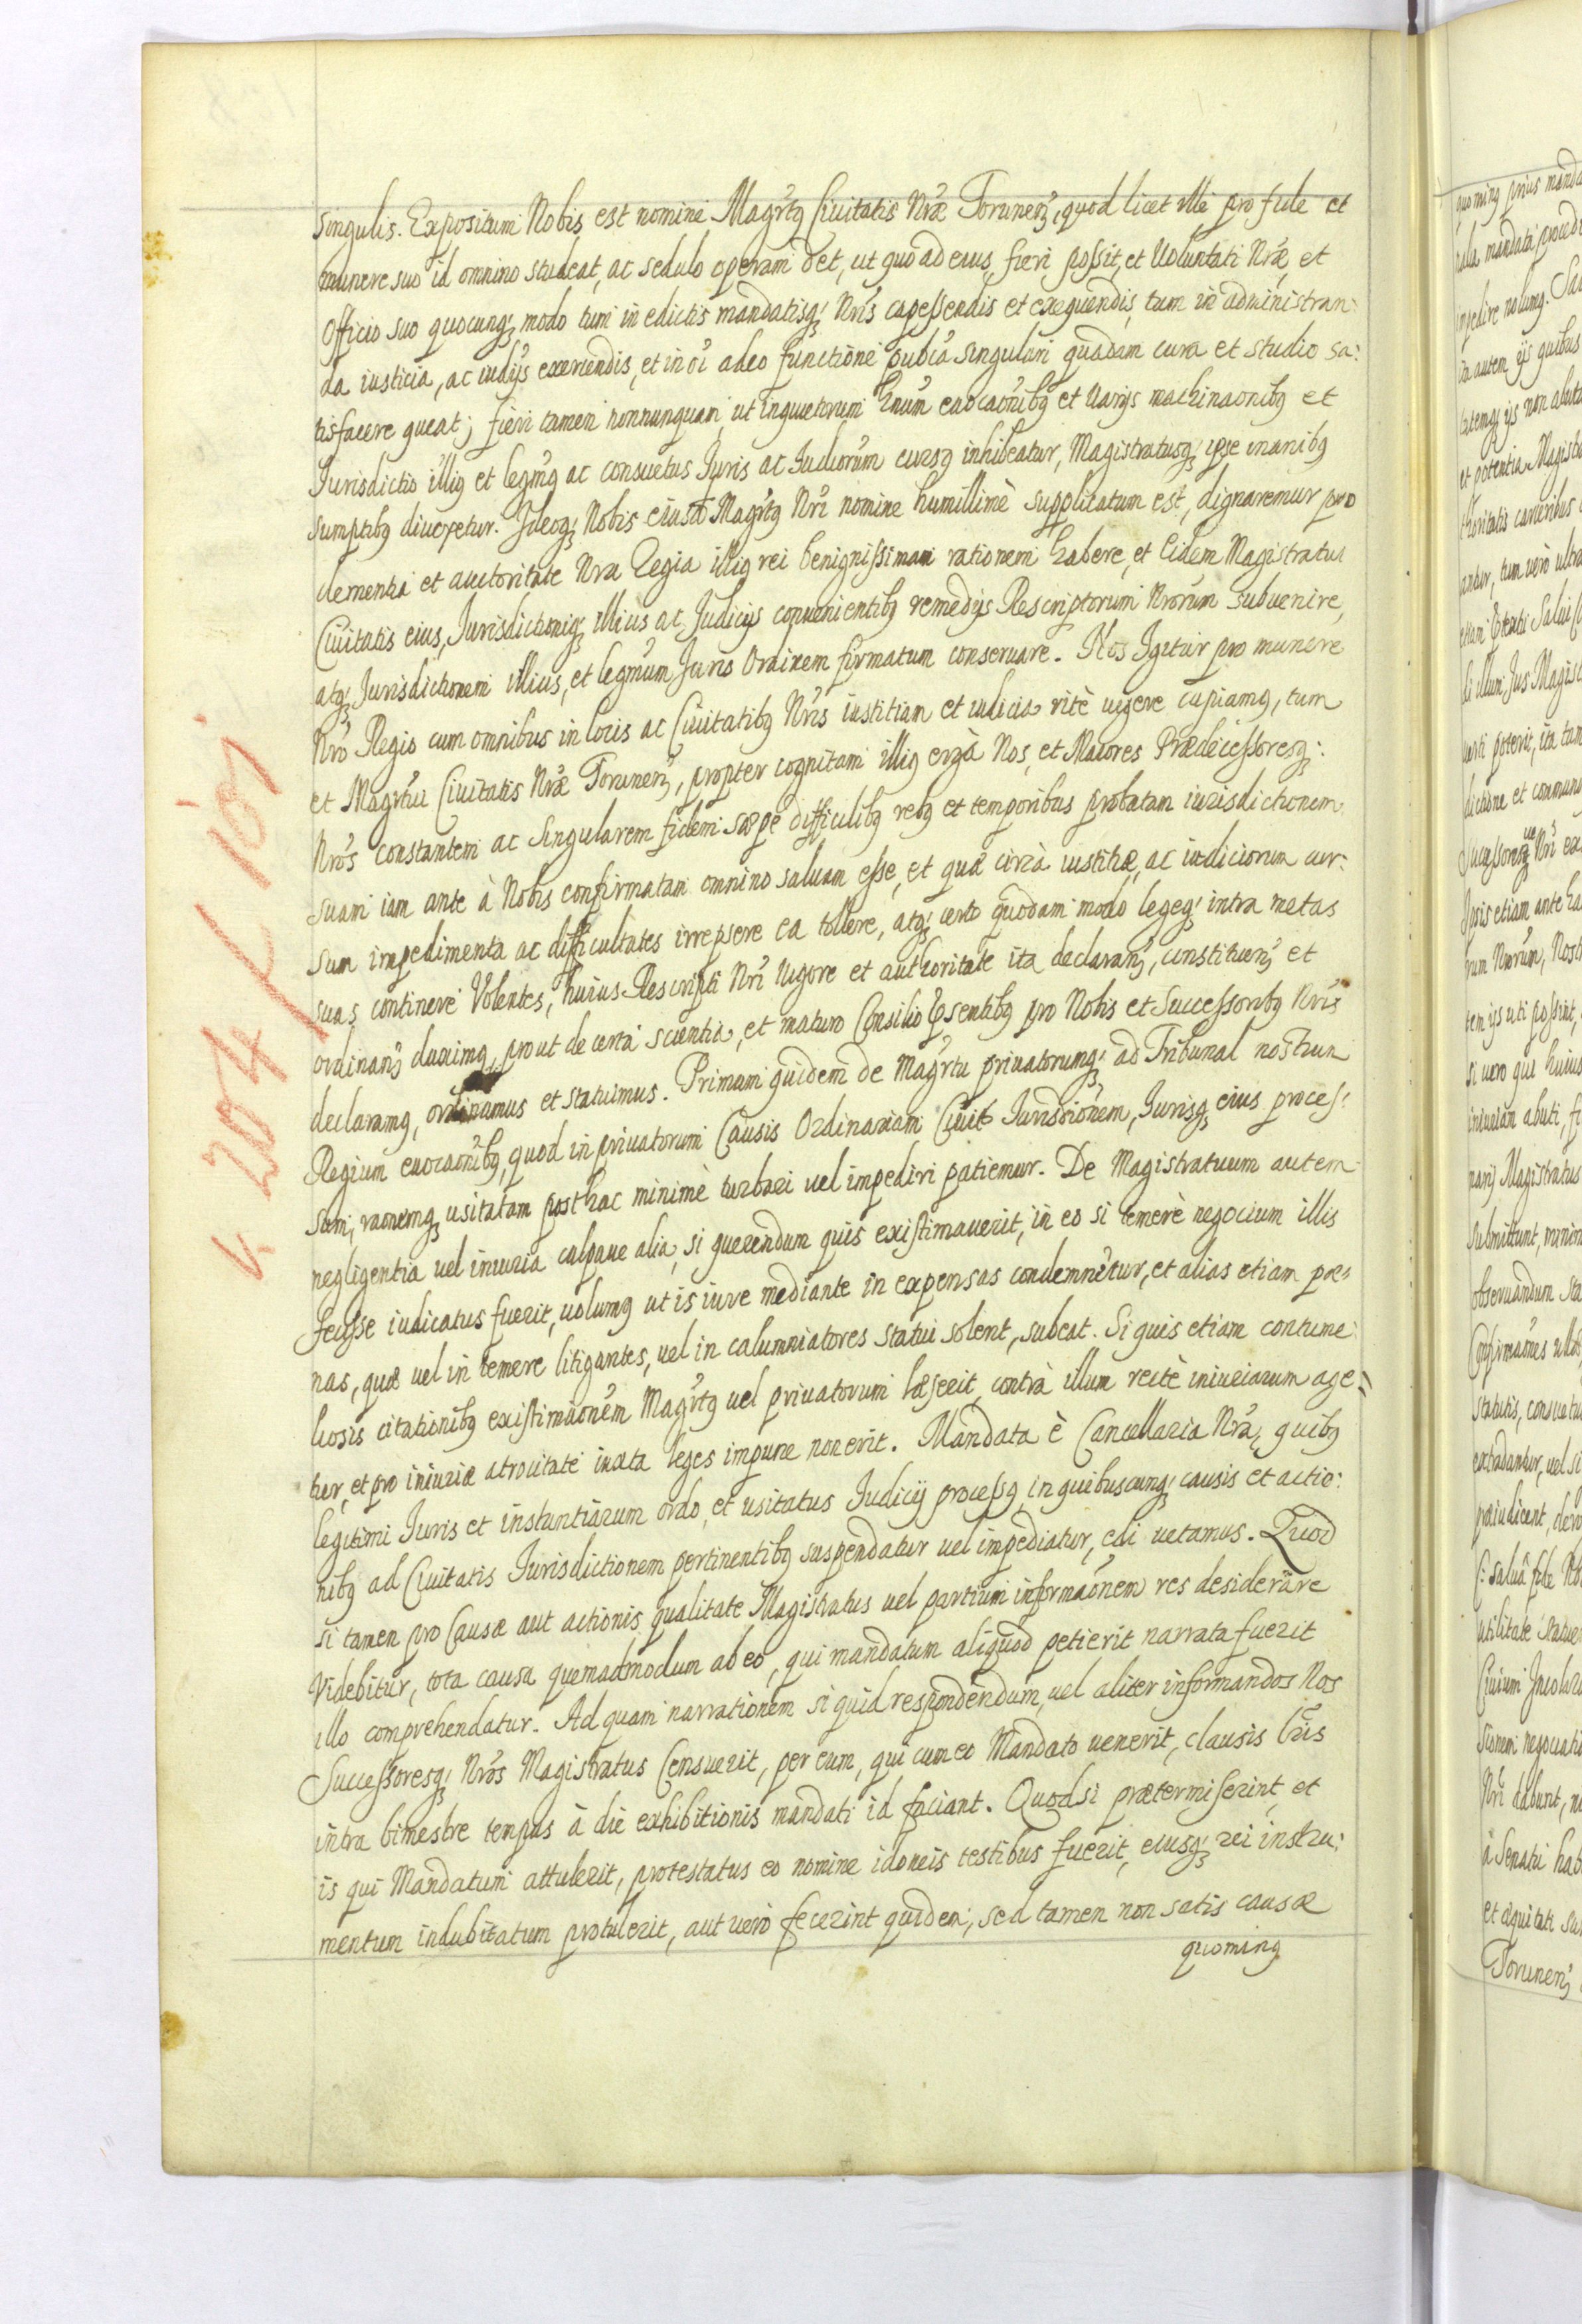 singulis. Expositum Nobis est nomine Magr̃tꝯ Ciuitatis Nræ Torunen̄, quod licet ille pro fide et
munere suo id omnino studeat, ac sedulo operam det, ut quo ad eius fieri possit, et Voluntati Nræ, et
Officio suo quocunqꝫ modo tum in edictis mandatisqꝫ Nris capessendis et exequendis, tum in administran:
da iusticia, ac iudijs exercendis, et in oi adeo functione publca singulari quadam cura et studio sa:
tisfacere queat; fieri tamen nonnunquam, ut inquietorum hnũm euocaõnibꝯ et Varijs machinaõnibꝯ et
Jurisdictio illiꝯ et legm̃ꝯ ac consuetus Juris ac Judiorũm cursꝯ inhibeatur, Magistratusqꝫ ipse inanibꝯ
sumptibꝯ diuexetur. Ideoqꝫ Nobis eiusd Magr̃tꝯ Nri nomine humillimè supplicatum est, dignaremur pro
clementia et auctoritate Nra Regia illiꝯ rei benignissimam rationem habere, et Eidem Magistratui
Ciuitatis eius, Jurisdictioniqꝫ illius ac Judicijs conuenientibꝯ remedijs Rescriptorum Nrorũm subuenire,
atqꝫ Jurisdictionem illius, et legm̃um Juris Ordinem firmatum conseruare. Nos Igitur pro munere
Nro Regio cum omnibus in locis ac Ciuitatibꝯ Nris iustitiam et iudicia ritè uigere cupiamꝯ, tum
et Magr̃tui Ciuitatis Nræ Torunen̄, propter cognitam illiꝯ ergà Nos, et Maiores Prædecessoresqꝫ:
Nros constantem ac singularem fidem sæpe difficilibꝯ rebꝯ et temporibus probatam iurisdictionem
suam iam ante à Nobis confirmatam omnino saluam esse, et quæ circà iustitiæ, ac iudiciorum cur:
sum impedimenta ac difficultates irrepsere ea tollere, atqꝫ certo quodam modo legeqꝫ intra metas
suas continere Volentes, huius Rescripti Nri Vigore et authoritate ita declaran̄, constituen̄ et
ordinan̄ duximꝯ, prout de certa scientia, et maturo Consilio p̃sentibꝯ pro Nobis et Successoribꝯ Nris
declaramꝯ, ordinamus et statuimus. Primam quidem de Magr̃tu priuatorumqꝫ ad Tribunal nostrum
Regium euocaõnibꝯ, quod in priuatorum Causis Ordinariam Ciuit Jurisdcionem, Jurisqꝫ eius proces:
sum, raonemqꝫ usitatam posthac minimè turbari uel impediri patiemur. De Magistratuum autem
negligentia uel iniuria culpaue alia, si querendum quis existimauerit, in eo si temerè negocium illis
fecisse iudicatus fuerit, uolumꝯ ut is iure mediante in expensas condemnetur, et alias etiam pœ:
nas, quæ uel in temere litigantes, uel in calumniatores statui solent, subeat. Si quis etiam contume:
liosis citationibꝯ existimaõnem Magr̃tꝯ uel priuatorum læserit, contrà illum rectè iniuriarum age:
tur, et pro iniuriæ atrocitate iuxta leges impune non erit. Mandata è Cancellaria Nra, quibꝯ
legitimi Juris et instantiarum ordo, et usitatus Judicij processꝯ in quibuscunqꝫ causis et actio:
nibꝯ ad Ciuitatis Jurisdictionem pertinentibꝯ suspendatur uel impediatur, edi uetamus. Quod
si tamen pro Causæ aut actionis qualitate Magistratus uel partium informaõnem res desiderare
Videbitur, tota causa quemadmodum ab eo, qui mandatum aliquod petierit narrata fuerit
illo comprehendatur. Ad quam narrationem si quid respondendum, uel aliter informandos Nos
Successoresqꝫ Nros Magistratus Censuerit, per eum, qui cum eo Mandato uenerit, clausis Lris
intra bimestre tempus à die exhibitionis mandati id faciant. Quod si prætermiserint, et
is qui Mandatum attulerit, protestatus eo nomine idoneis testibus fuerit, eiusqꝫ rei instru:
mentum indubitatum protulerit, aut uero fecerint quidem, sed tamen non satis causæ
quominꝯ